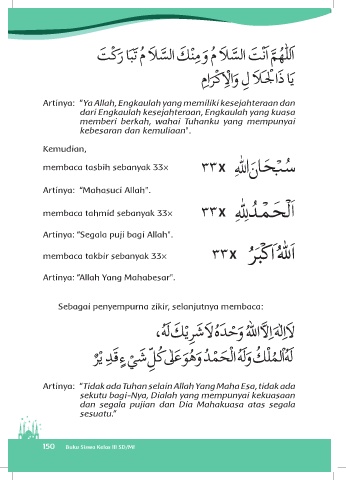 اَللّٰهُمَّ اَنْتَ السَّلَامُ وَمِنْكَ السَّلَامُ تَبَارَكْتَ
يَا ذَاالْجَلَالِ وَالْاِكْرَامِ
Artinya: "Ya Allah, Engkaulah yang memiliki kesejahteraan dan
dari Engkaulah kesejahteraan, Engkaulah yang kuasa
memberi berkah, wahai Tuhanku yang mempunyai
kebesaran dan kemuliaan".
Kemudian,
membaca tasbih sebanyak 33× ٣٣x سُبْحَانَ اللهِ
Artinya: "Mahasuci Allah".
membaca tahmid sebanyak 33× ٣٣x اَلْحَمْدُلِلّٰهِ
Artinya: "Segala puji bagi Allah".
membaca takbir sebanyak 33× ٣٣x اَللهُ اَكْبَرُ
Artinya: "Allah Yang Mahabesar".
Sebagai penyempurna zikir, selanjutnya membaca:
لَااِلٰهَ اِلَّااللهُ وَحْدَهُ لَاشَرِيْكَ لَهُ،
لَهُ الْمُلْكُ وَلَهُ الْحَمْدُ وَهُوَ عَلٰى كُلِّ شَيْءٍ قَدِيْرٌ
Artinya: "Tidak ada Tuhan selain Allah Yang Maha Esa, tidak ada
sekutu bagi-Nya, Dialah yang mempunyai kekuasaan
dan segala pujian dan Dia Mahakuasa atas segala
sesuatu."
150 Buku Siswa Kelas III SD/MI